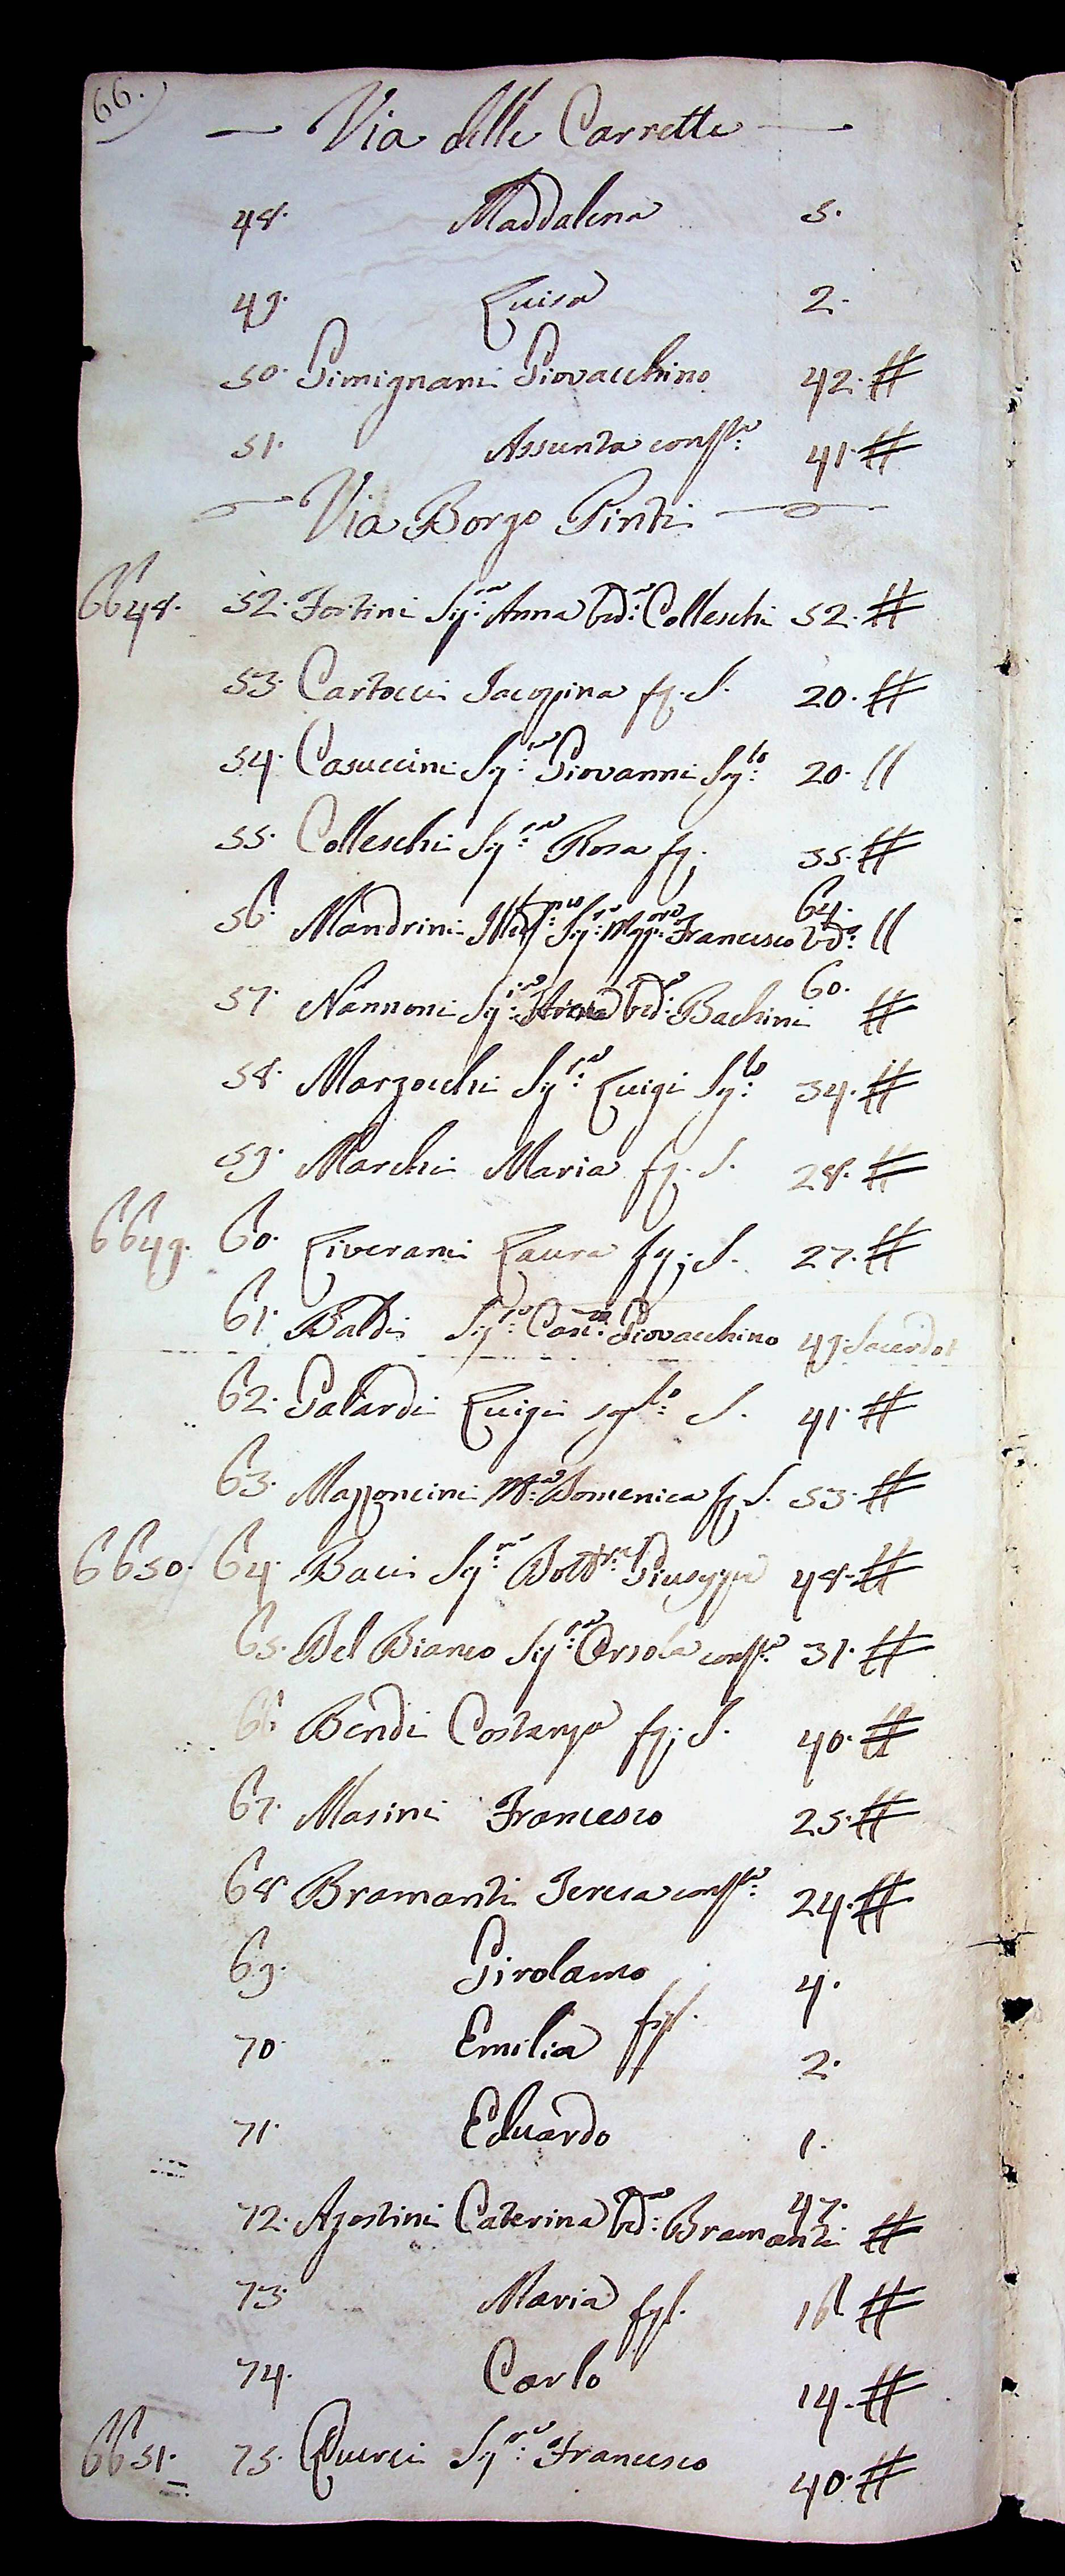 66.
Via delle Carrette
48. Maddalena 5.
49. Luisa 2.
50. Gimignani Giovacchino 42. #
51. Assunta conste: 41. #
Via Borgo Pinti
6648. 52. Fortini Sig:ra Anna Ved:a Colleschi 52. #
53. Cartocci Jacopina fg. S. 20. #
54. Casuccini Sig:re Giovanni Sg:lo 20. //
55. Colleschi Sig:ra Rosa fg. 35. #
56. Mandrini Sig:re Francesco Vd:o 64. //
57. Nannoni Sig:ra Ved:a Bachini 60. #
58. Marzocchi Sig:re Luigi Sg:lo 34. #
59. Marchi Maria fg. S. 28. #
6649. 60. Liverani Laura fg. S. 27. #
61. Baldi Sig:re Can:co Giovacchino 49. Sacerdot
62. Galardi Luigi sg:lo S. 41. #
63. Mazzoncini M:a Domenica fg. S. 53. #
6650. 64. Bacci Sig:re Dott:re Giuseppe 48. #
65. Del Bianco Sig:ra Orsola conste: 31. #
66. Bendi Costanza fg. S. 40. #
67. Masini Francesco 25. #
68. Bramanti Teresa conste: 24. #
69. Girolamo 4.
70. Emilia figl. 2.
71. Eduardo 1.
72. Agostini Caterina Ved:a Bramanti 47. #
73. Maria fgl. 16. #
74. Carlo 14. #
6651. 75. Querci Sig:re Francesco 40. #